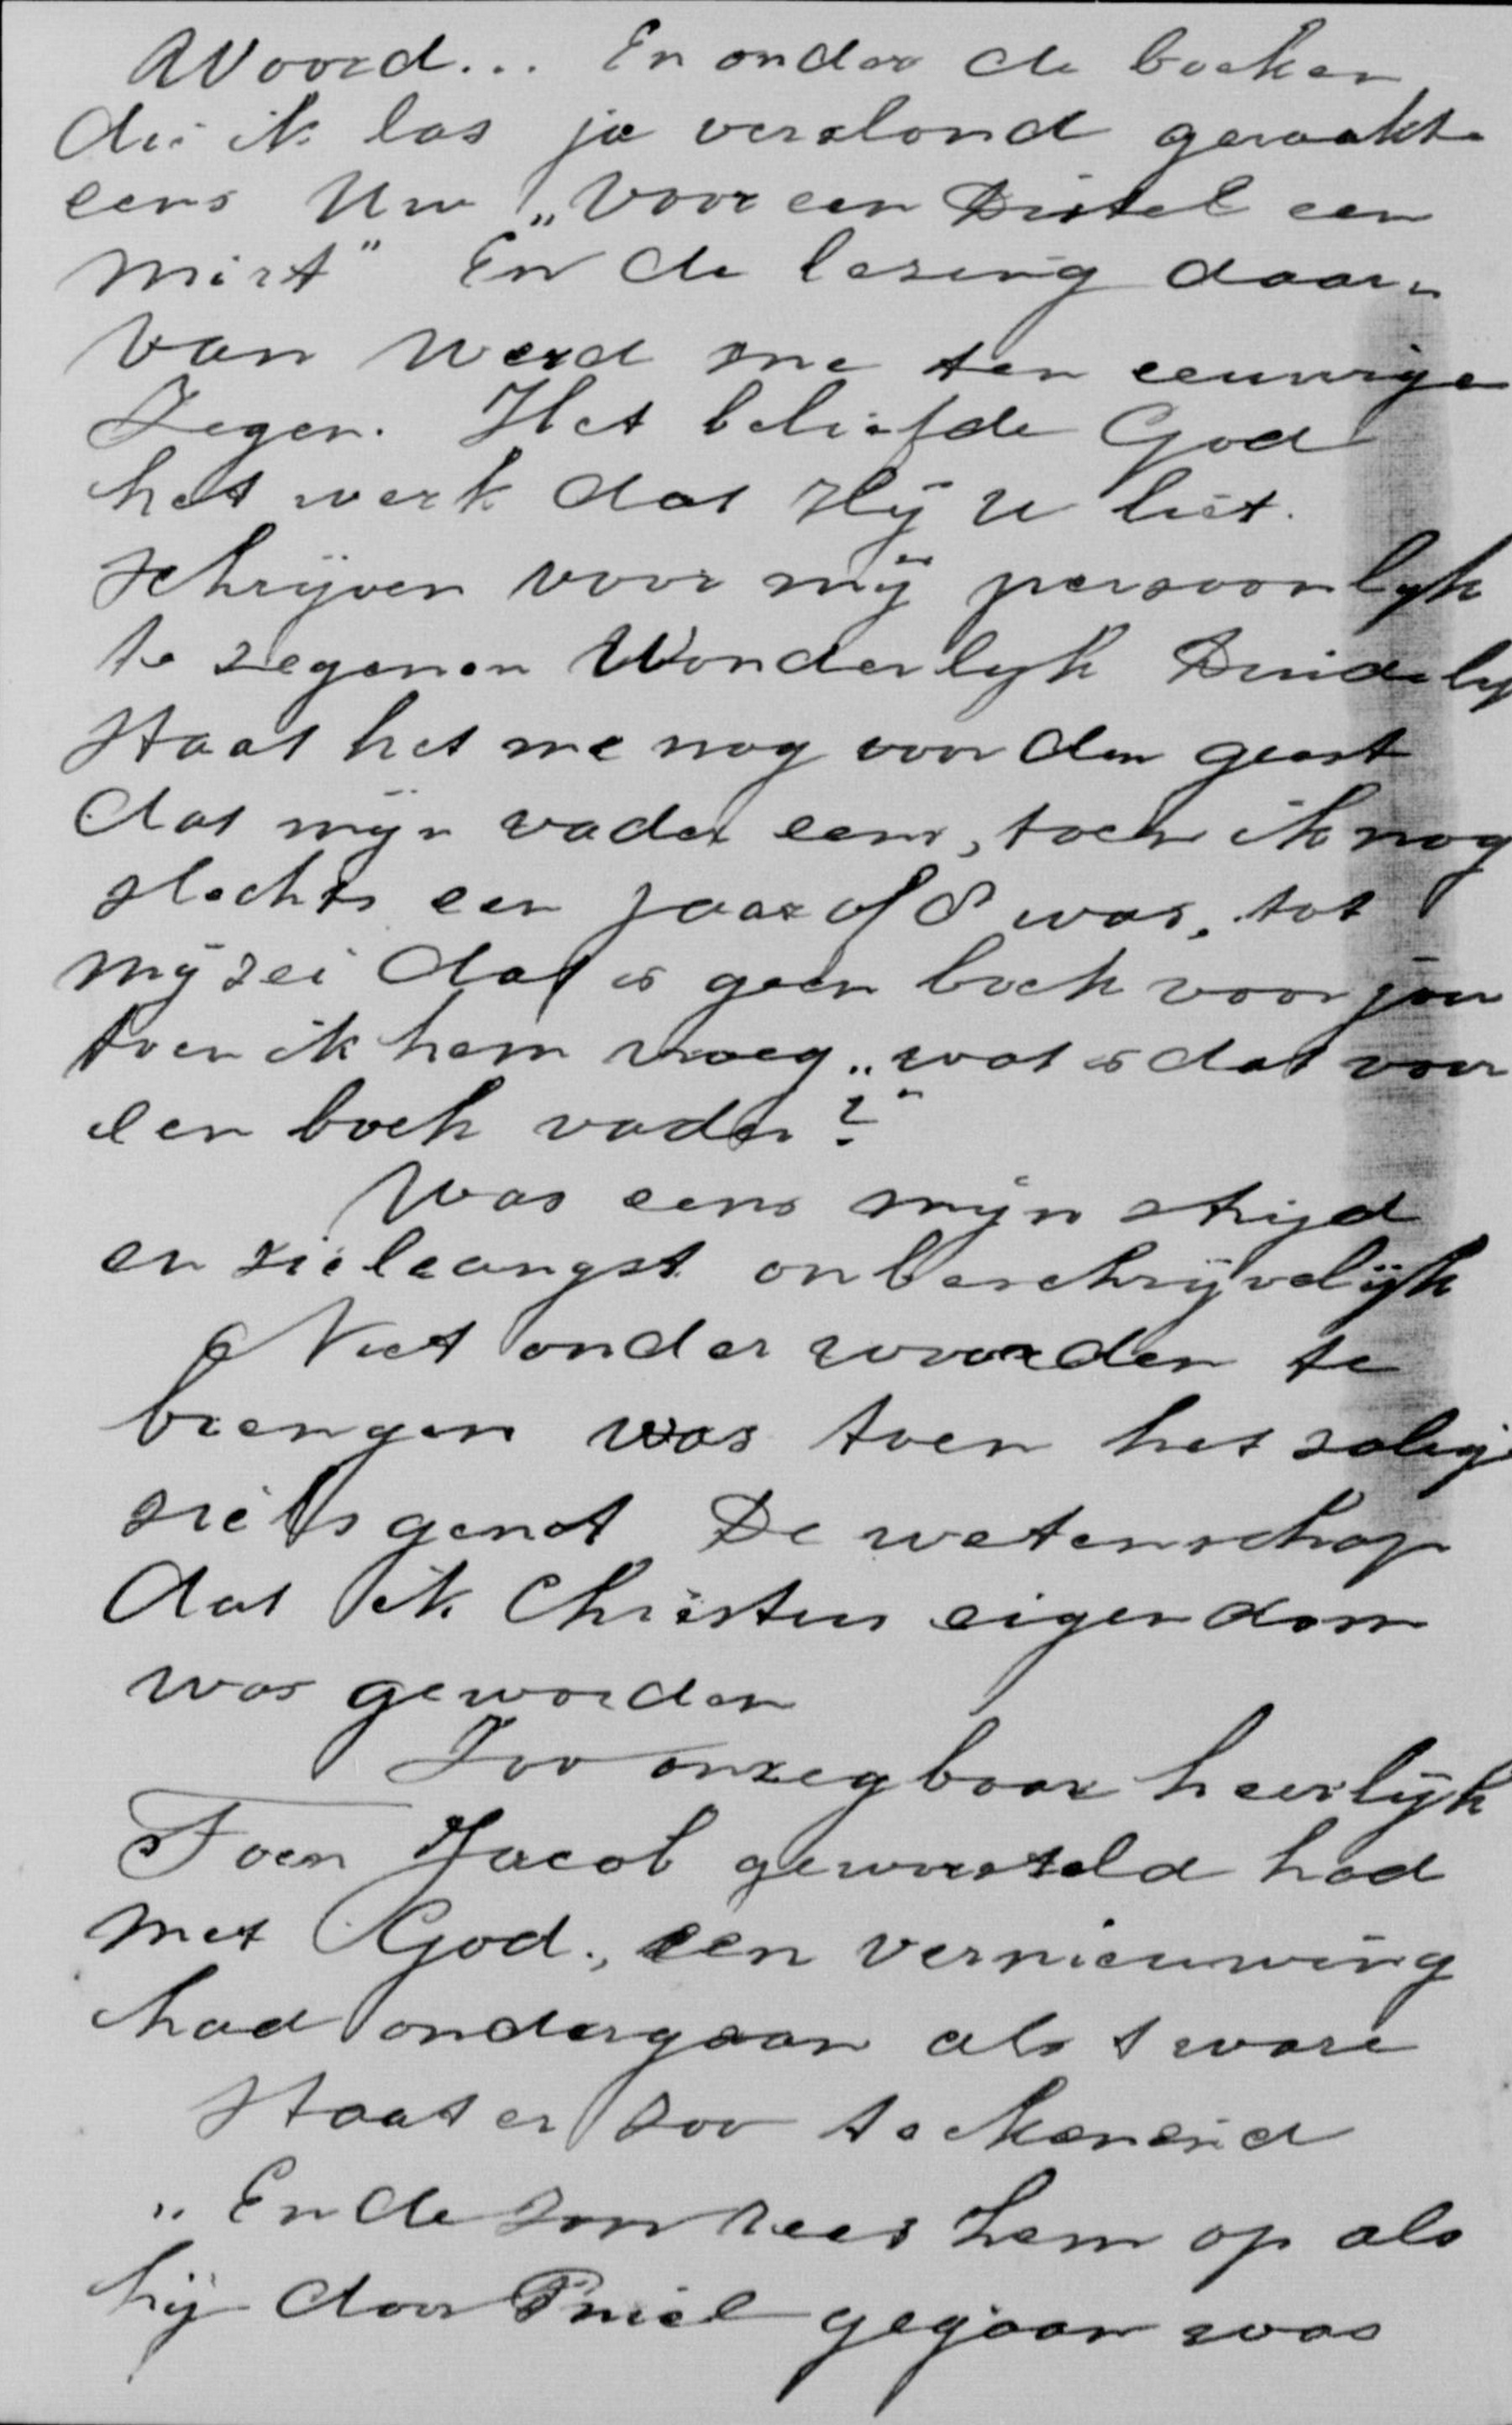 Woord... En onder de boeken
die ik las ja verslond geraakte
eens Uw „Voor een Distel een
mirt" En de lezing daar„
van werd me ten eeuwige
Zegen. Het beliefde God
het werk dat Hij u liet
schrijven voor mij persoonlijk
te zegenen Wonderlijk Duidelij
staat het me nog voor den geest
dat mijn vader eens, toen ik nog
slechts een jaar of 8 was, tot
mij zei dat is geen boek voor jou
toen ik hem vroeg „wat is dat voor
een boek vader?"
Was eens mijn strijd
en zieleangst onbeschrijvelijk
Niet onder woorden te
brengen was toen het zalig
zielsgenot De wetenschap
dat ik Christus eigendom
was geworden
Zoo onzegbaar heerlijk
Toen Jacob geworsteld had
met God, een vernieuwing
had ondergaan als t ware
staat er zoo teekenend
„En de zon rees hem op als
hij door Pniel gegaan was